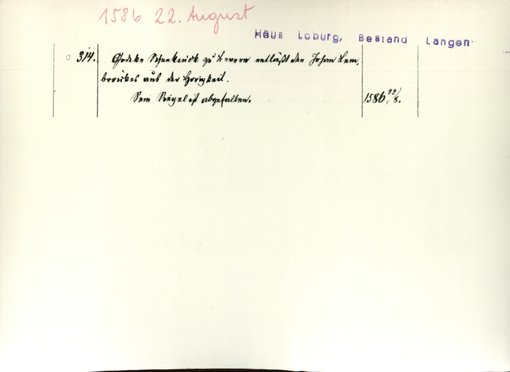 1586 22. August
Haus Loburg, Bestand Langen
314. Godeke Schenkinck zu Bevern entläßt den Johan Lem-
brockes aus der Hörigkeit.
Sein Siegel ist abgefallen. 1586 22/8.